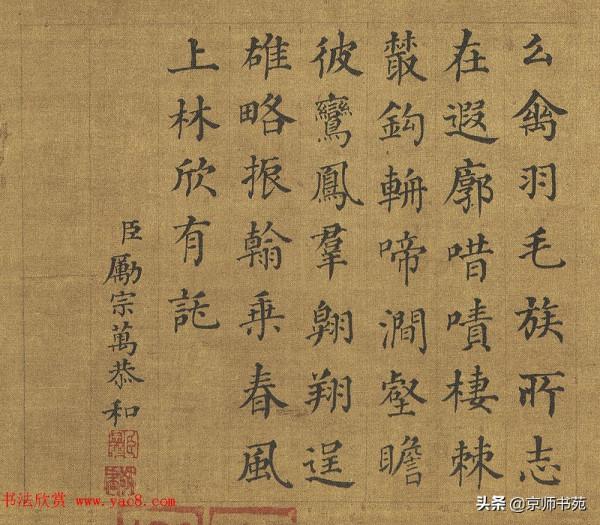 么禽羽毛族所志
在遐廓唶嘖棲棘
叢鈎輈啼澗壑瞻
彼鸞鳳羣翱翔逞
雄略振翰乗春風
上林欣有託
臣勵宗萬恭和
书法欣赏 www.yac8.com
头条 @京师书苑